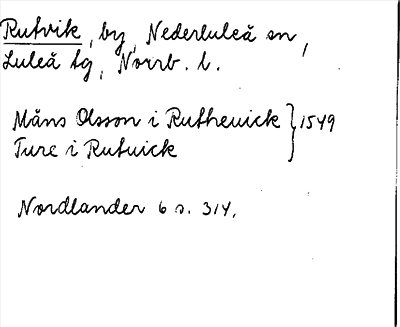 Rutvik, by, Nederluleå sn,
Luleå tg, Norrb. l.
Måns Olsson i Rutheuick } 1549
Ture i Rutuick
Nordlander 6 s. 314.